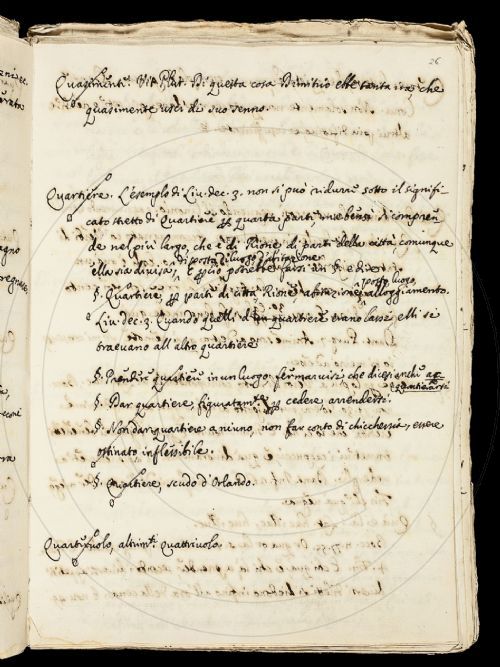 26
Quasimente. Vit. Plut. Di questa cosa Dimitrio ebbe tanta ira, che
quasimente uscì di suo senno.
Quartiere. L'esemplo di Liv. dec. 3. non si può ridurre sotto il signifi-
cato stretto di Quartiere per quarta parte, ma bensì si compren
de nel più largo, che è di Rione, di parte della città, comunque
ella sia divisa, di posta, di luogo d'abitazione. E però potrebbe farsi un §. e dire
§. Quartiere, per parte di città, Rione, abitazione, posto, luogo, alloggiamento.
Liv. dec. 3. Quando quelli d'un quartiere erano lassi, elli si
traevano all'altro quartiere
§. Prendere quartiere in un luogo, fermarvisi che dicesi anche
acquartierarsi
§. Dar quartiere, figuratam.te per cedere arrendersi.
§. Non dar quartiere a niuno, non far conto di chicchessia, essere
ostinato inflessibile.
§. Quartiere, scudo d'Orlando.
Quartiruolo, altrim.ti quattrivolo.